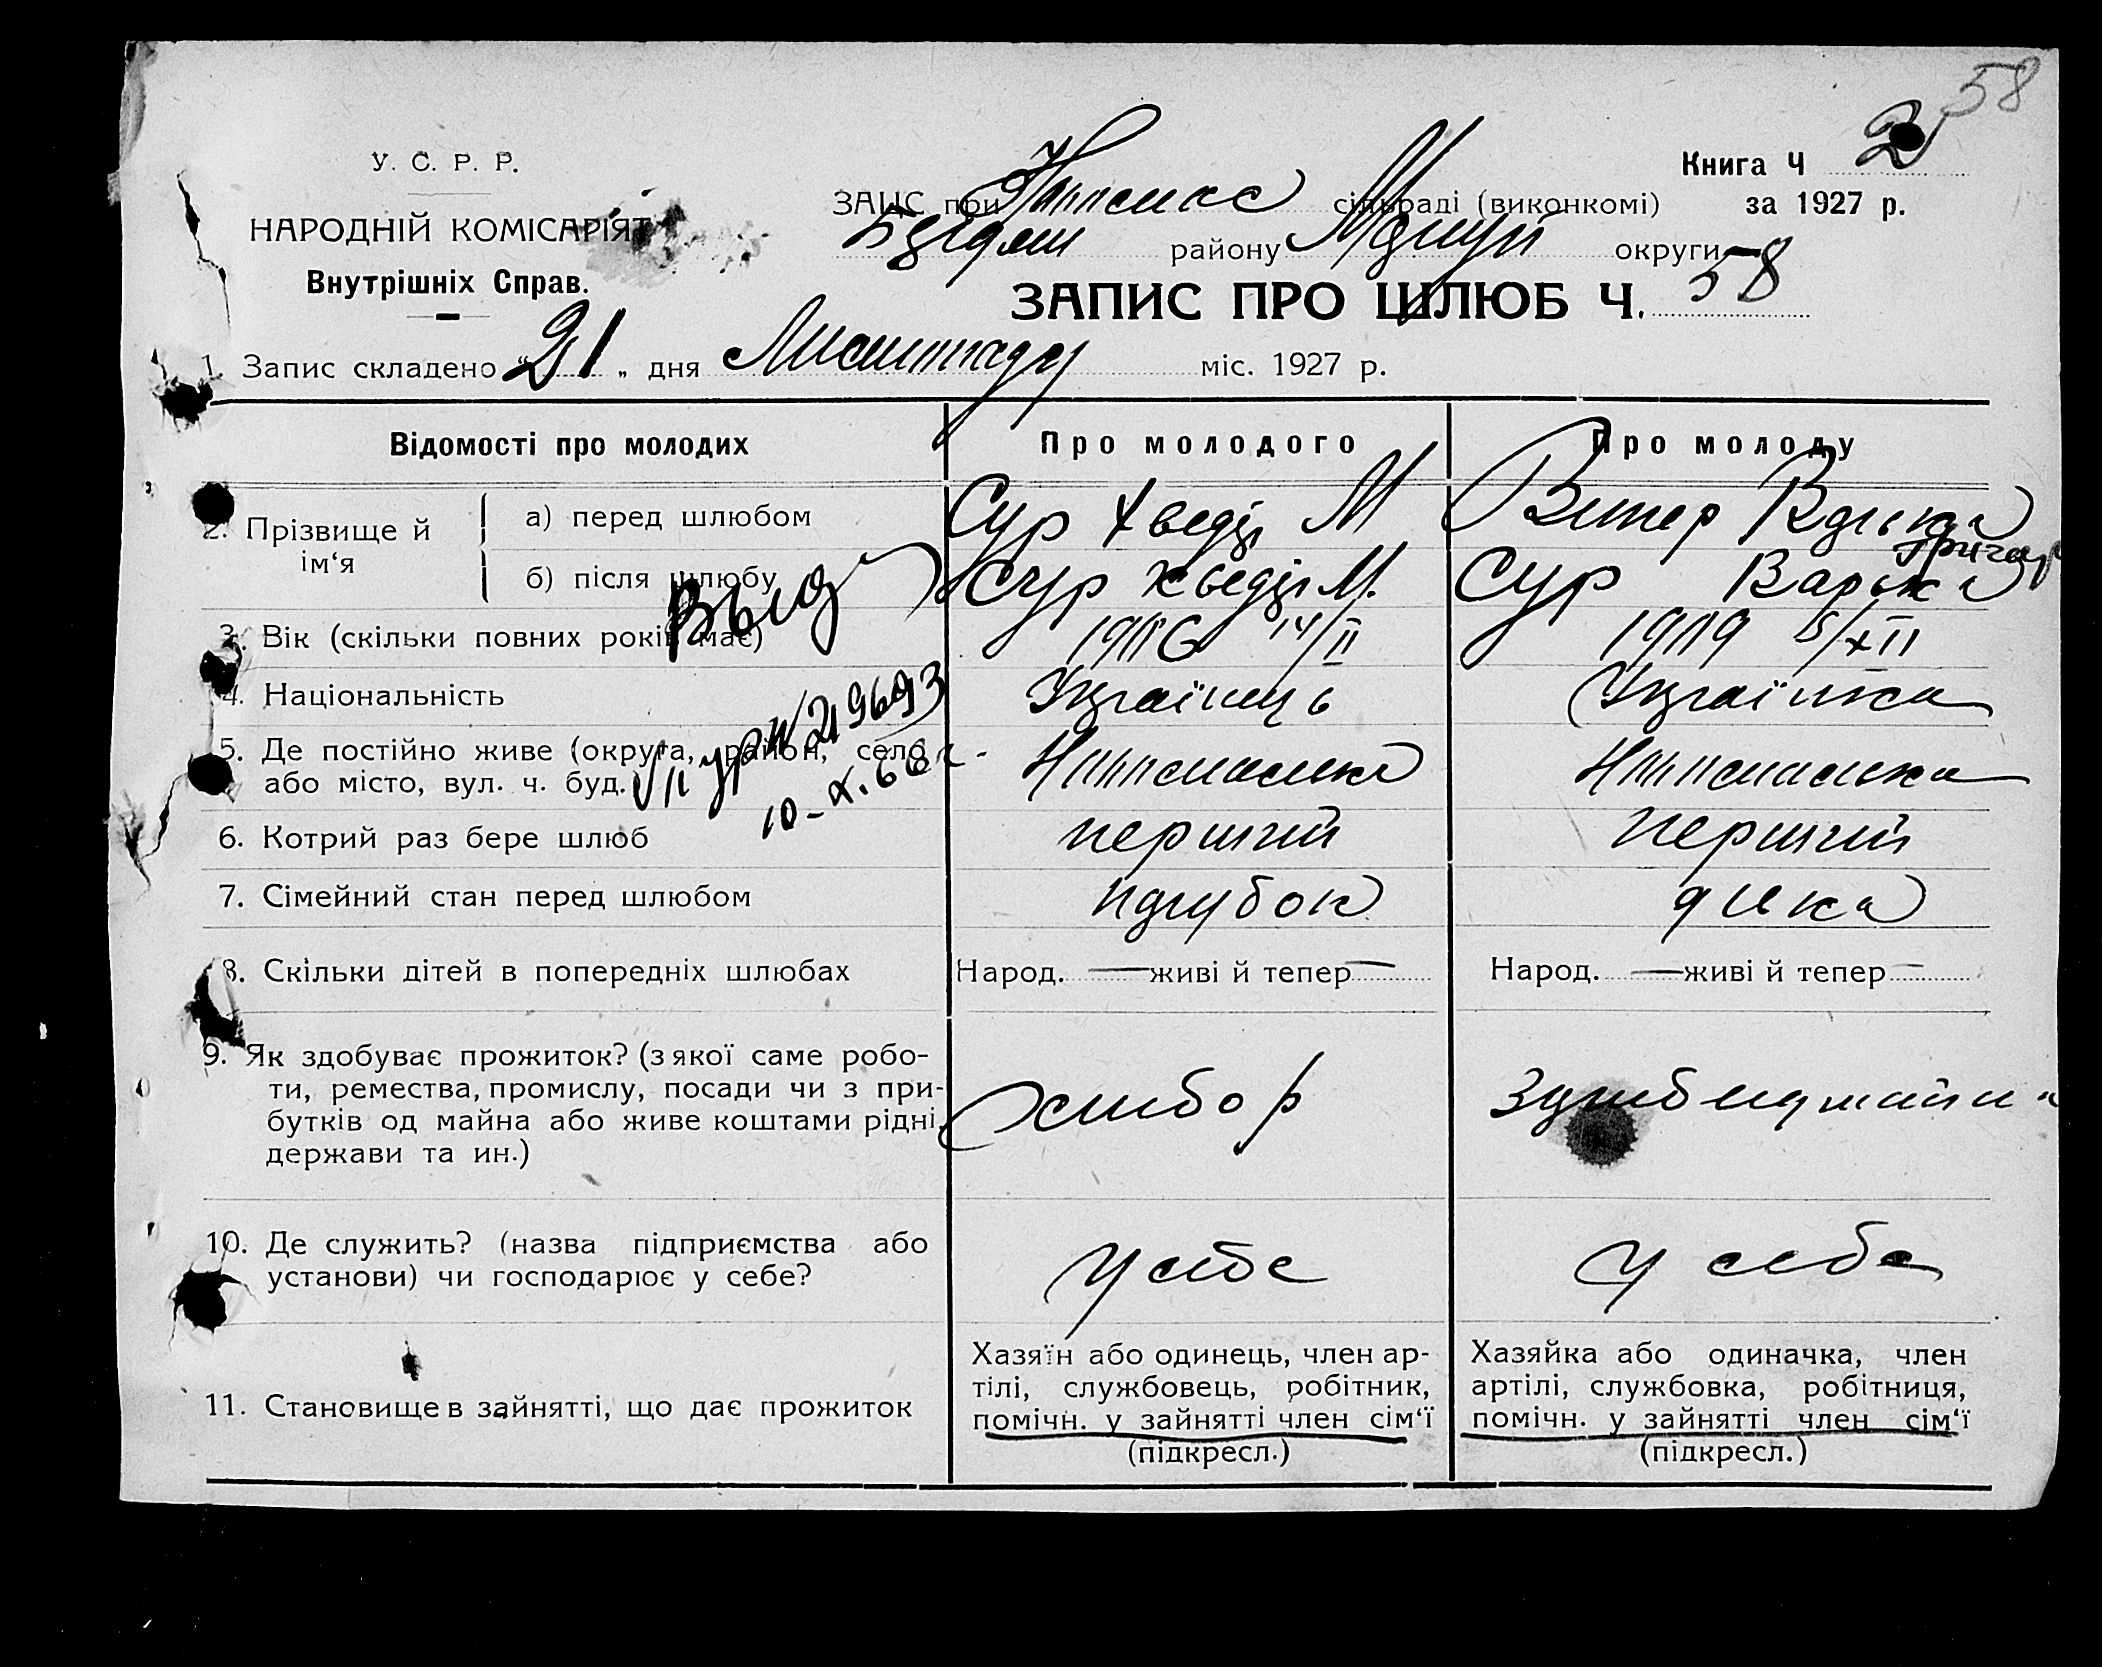 58
У. С. Р. Р.
НАРОДНІЙ КОМІСАРІЯТ
Внутрішніх Справ.
Книга Ч 2
ЗАГС при сільраді (виконкомі) за 1927 р.
району округи
ЗАПИС ПРО ШЛЮБ Ч. 58
1. Запис складено „21„ дня Листопаду міс. 1927 р.
Відомості про молодих
Про молодого
Про молоду
2. Прізвище й ім‘я
а) перед шлюбом
Сур Хведір М
Витер Варька
б) після шлюбу
Сур Хведір М.
Сур Варька
Выд
3. Вік (скільки повних років має)
19 14/II
19 5/XII
4. Національність
Українець
Українка
5. Де постійно живе (округа, район, село
або місто, вул. ч. буд.)
10-X.66
6. Котрий раз бере шлюб
перший
перший
7. Сімейний стан перед шлюбом
парубок
дивка
8. Скільки дітей в попередніх шлюбах
Народ. — живі й тепер —
Народ. — живі й тепер —
9. Як здобуває прожиток? (з якої саме робо-
ти, ремества, промислу, посади чи з при-
бутків од майна або живе коштами рідні,
держави та ин.)
хлибор
10. Де служить? (назва підприємства або
установи) чи господарює у себе?
у себе
у себе
11. Становище в зайнятті, що дає прожиток
Хазяїн або одинець, член ар-
тілі, службовець, робітник,
помічн. у зайнятті член сім‘ї
(підкресл.)
Хазяйка або одиначка, член
артілі, службовка, робітниця,
помічн. у зайнятті член сім‘ї
(підкресл.)